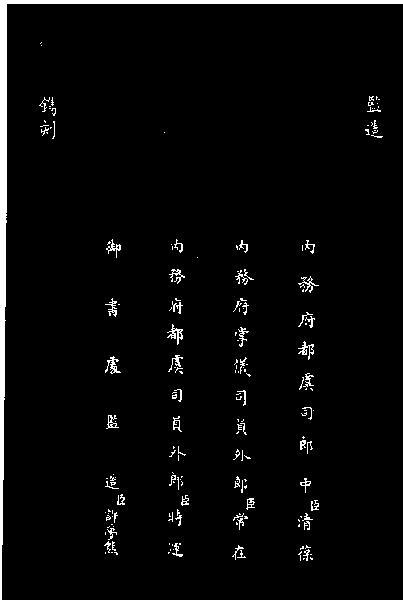 監造
內務府都虞司郎中臣清葆
內務府掌儀司員外郎臣常在
內務府都虞司員外郎臣特通
御書處監造臣許夢熊
鐫刻